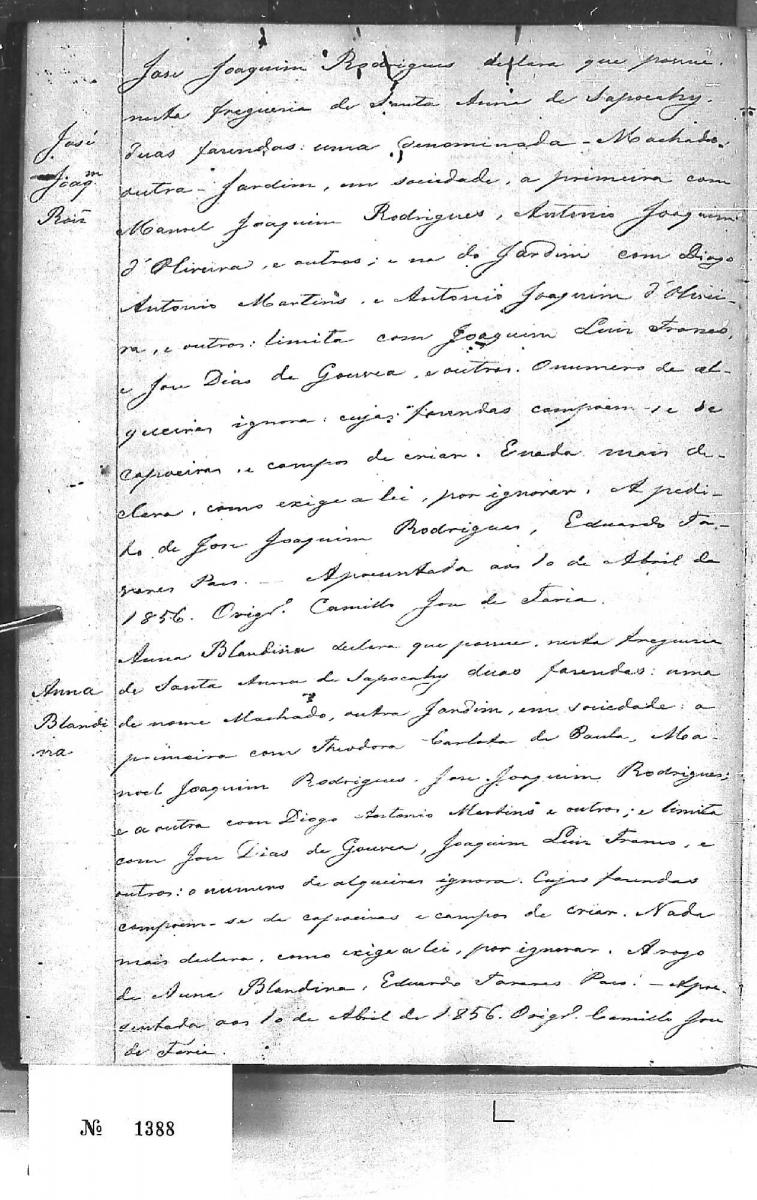 José
Joaqm
Roiz
José Joaquim Rodrigues declara que possue,
nesta freguesia de Santa Anna de Sapocahy,
duas fasendas: uma denominada - Machado,
outra - Jardim, em sociedade, a primeira com
Manoel Joaquim Rodrigues, Antonio Joaquim
d'Oliveira, e outros; e na do Jardim com Diogo
Antonio Martins, e Antonio Joaquim d'Olivei-
ra, e outros: limita com Joaquim Luiz Franco,
e Jose Dias de Gouvea, e outros. O numero de al-
queires ignora: cujas fasendas compoem-se de
capoeiras, e campos de criar. E nada mais de-
clara, como exige a lei, por ignorar. A pedi-
do de Jose Joaquim Rodrigues, Eduardo Ta-
vares Paes. — Apresentada aos 10 de Abril de
1856. Origl. Camillo Jose de Faria.
Anna
Blandi
na
Anna Blandina declara que possue, nesta freguesia
de Santa Anna de Sapocahy duas fasendas: uma
de nome Machado, outra Jardim, em sociedade: a
primeira com Theodora Carlota de Paula, Ma-
noel Joaquim Rodrigues, Jose Joaquim Rodrigues;
e a outra com Diogo Antonio Martins e outros; e limita
com Jose Dias de Gouvea, Joaquim Luiz Franco, e
outros: o numero de alqueires ignora. Cujas fasendas
compoem-se de capoeiras e campos de criar. Nada
mais declara, como exige a lei, por ignorar. A rogo
de Anna Blandina, Eduardo Tavares Paes. — Apre-
sentada aos 10 de Abril de 1856. Origl. Camillo Jose
de Faria.
№ 1388